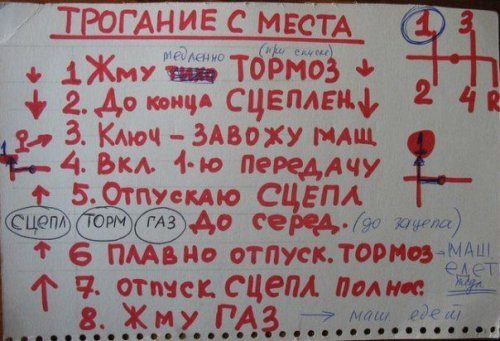 ТРОГАНИЕ С МЕСТА
1 3
2 4 R
медленно (при спуске)
1 Жму ТОРМОЗ
2. До конца СЦЕПЛЕН
3. Ключ – ЗАВОЖУ МАШ
4. Вкл. 1-ю ПЕРЕДАЧУ
1
5. Отпускаю СЦЕПЛ
СЦЕПЛ ТОРМ ГАЗ До серед. (до зацепа)
6 ПЛАВНО отпуск. ТОРМОЗ → МАШ
едет
7. отпуск СЦЕПЛ полнос.
8. Жму ГАЗ → маш едет